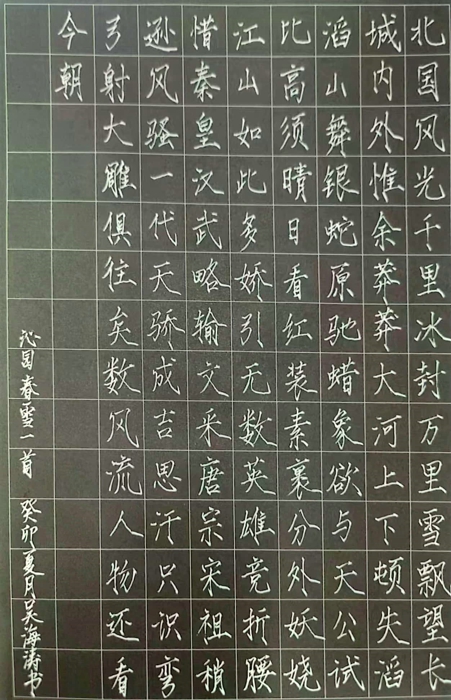 北国风光千里冰封万里雪飘望长
城内外惟余莽莽大河上下顿失滔
滔山舞银蛇原驰蜡象欲与天公试
比高须晴日看红装素裹分外妖娆
江山如此多娇引无数英雄竞折腰
惜秦皇汉武略输文采唐宗宋祖稍
逊风骚一代天骄成吉思汗只识弯
弓射大雕俱往矣数风流人物还看
今朝
沁园春雪一首 癸卯夏月吴海涛书